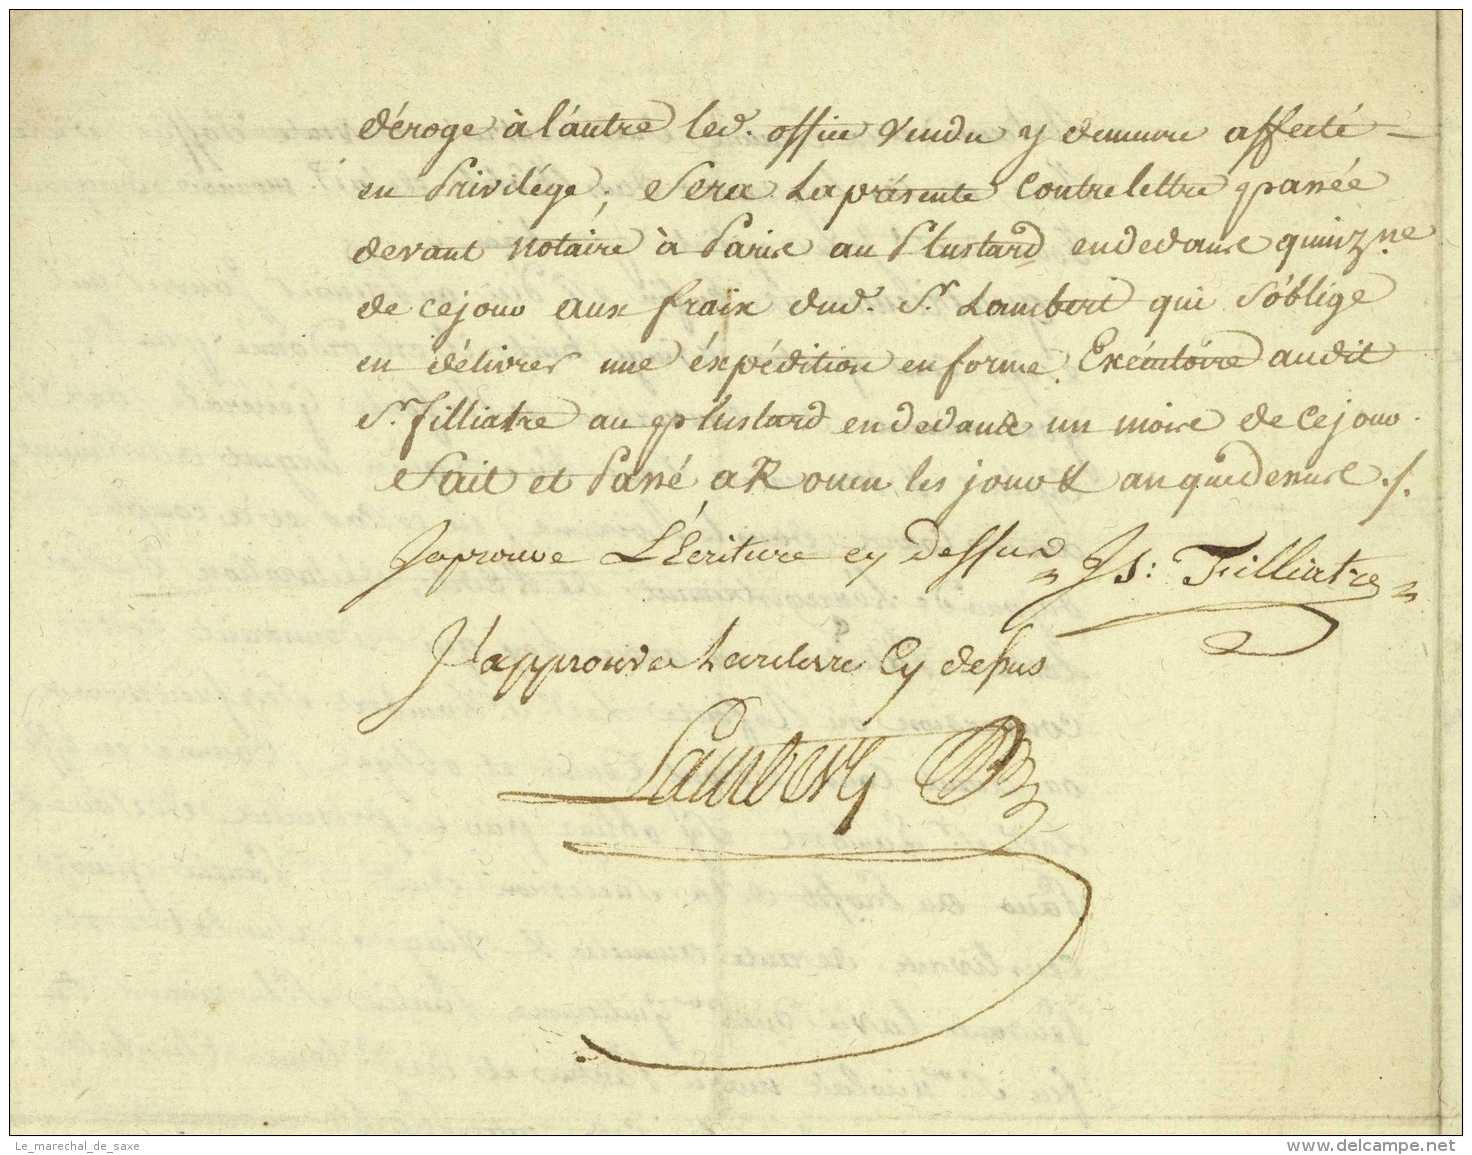 déroge à l'autre led. office vendu y demeure affecté
en Privilége; Sera la présente Contrelettre passée
devant Notaire à Paris au Plustard endedans quinz.ne
de cejour aux fraix dud. Sr. Lambert qui s'oblige
en délivrer une éxpédition en forme Exécutoire audit
Sr. filliatre au plustard endedans un mois de cejour.
Fait et Passé a Rouen les jour & an quedessus ./.
Japrouve L'Ecriture cy dessus Js: Filliatre
J'approuve Lecriture Cy desus
Lambert
Le_marechal_de_saxe
www.delcampe.net